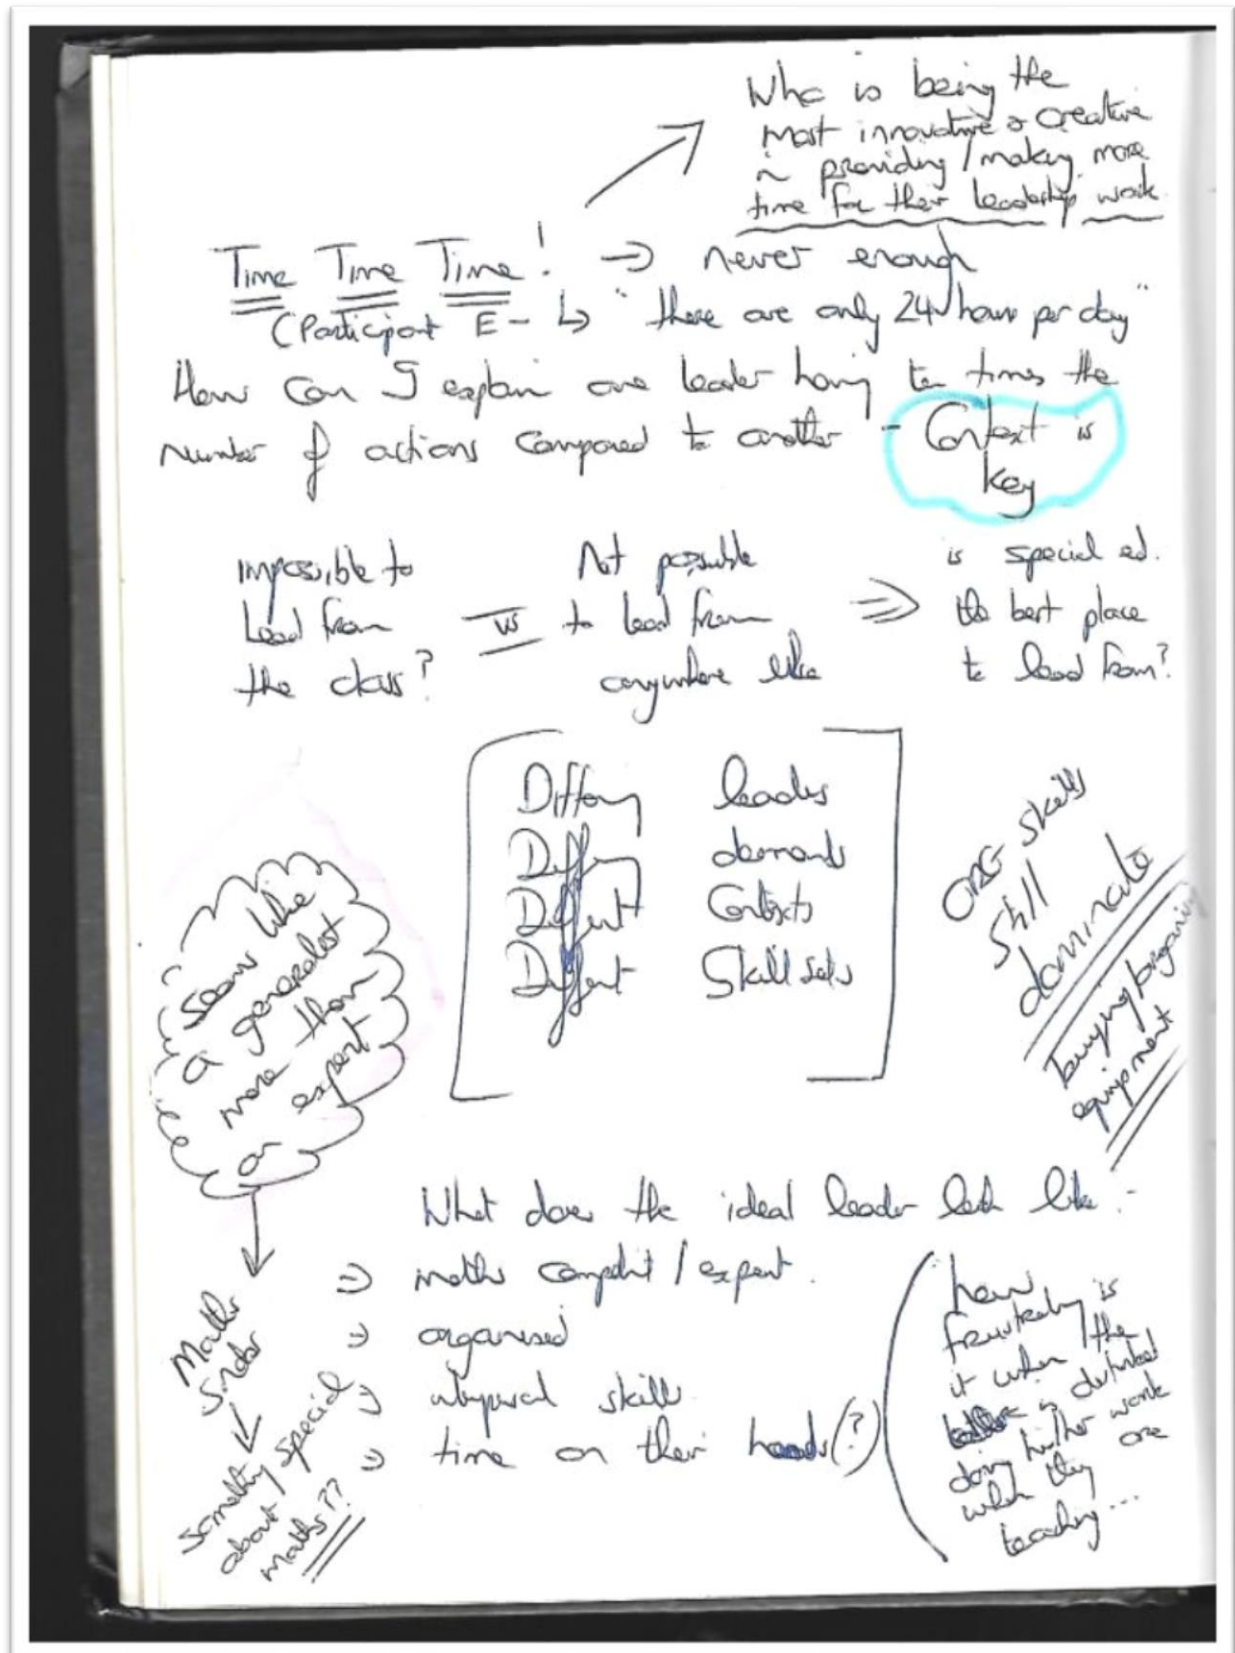 Who is being the
most innovative & creative
in providing / making more
time for their leadership work
Time Time Time! → never enough
(Participant E - ↳ "there are only 24 hours per day"
How can I explain one leader having ten times the
number of actions compared to another - Context is
key
impossible to
lead from
the class?
vs
Not possible
to lead from
anywhere else
⇒
is special ed.
the best place
to lead from?
Differing leaders
Differing demands
Different Contexts
Different Skill sets
ORG skills
still
dominate
buying/organising
equipment
Seems like
a generalist
more than
an expert
↓
Maths
↓
Something special
about
maths??
What does the ideal leader look like :-
⇒ maths competent / expert.
⇒ organised
⇒ skill
⇒ time on their hands (?)
how
frustrating is
it when the
is disturbed
doing his/her work
when they are
teaching...